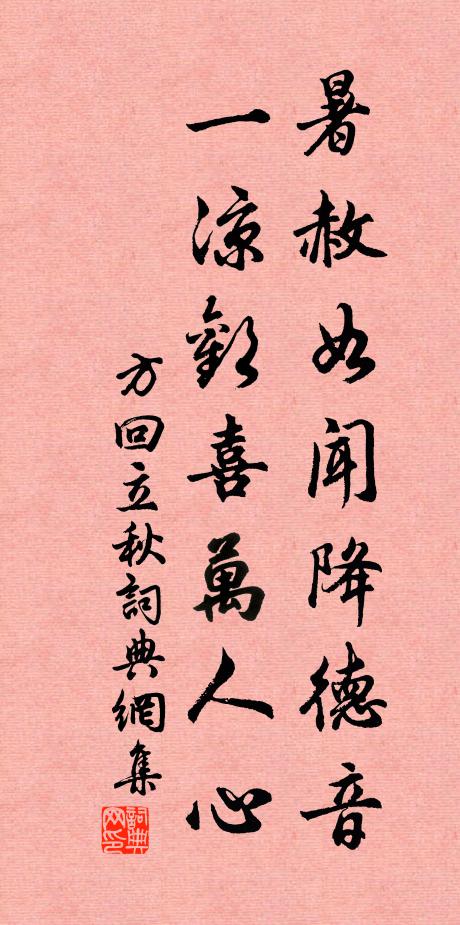 暑赦如闻降德音
一凉歡喜萬人心
方回立秋詞典網集
詞典
网印